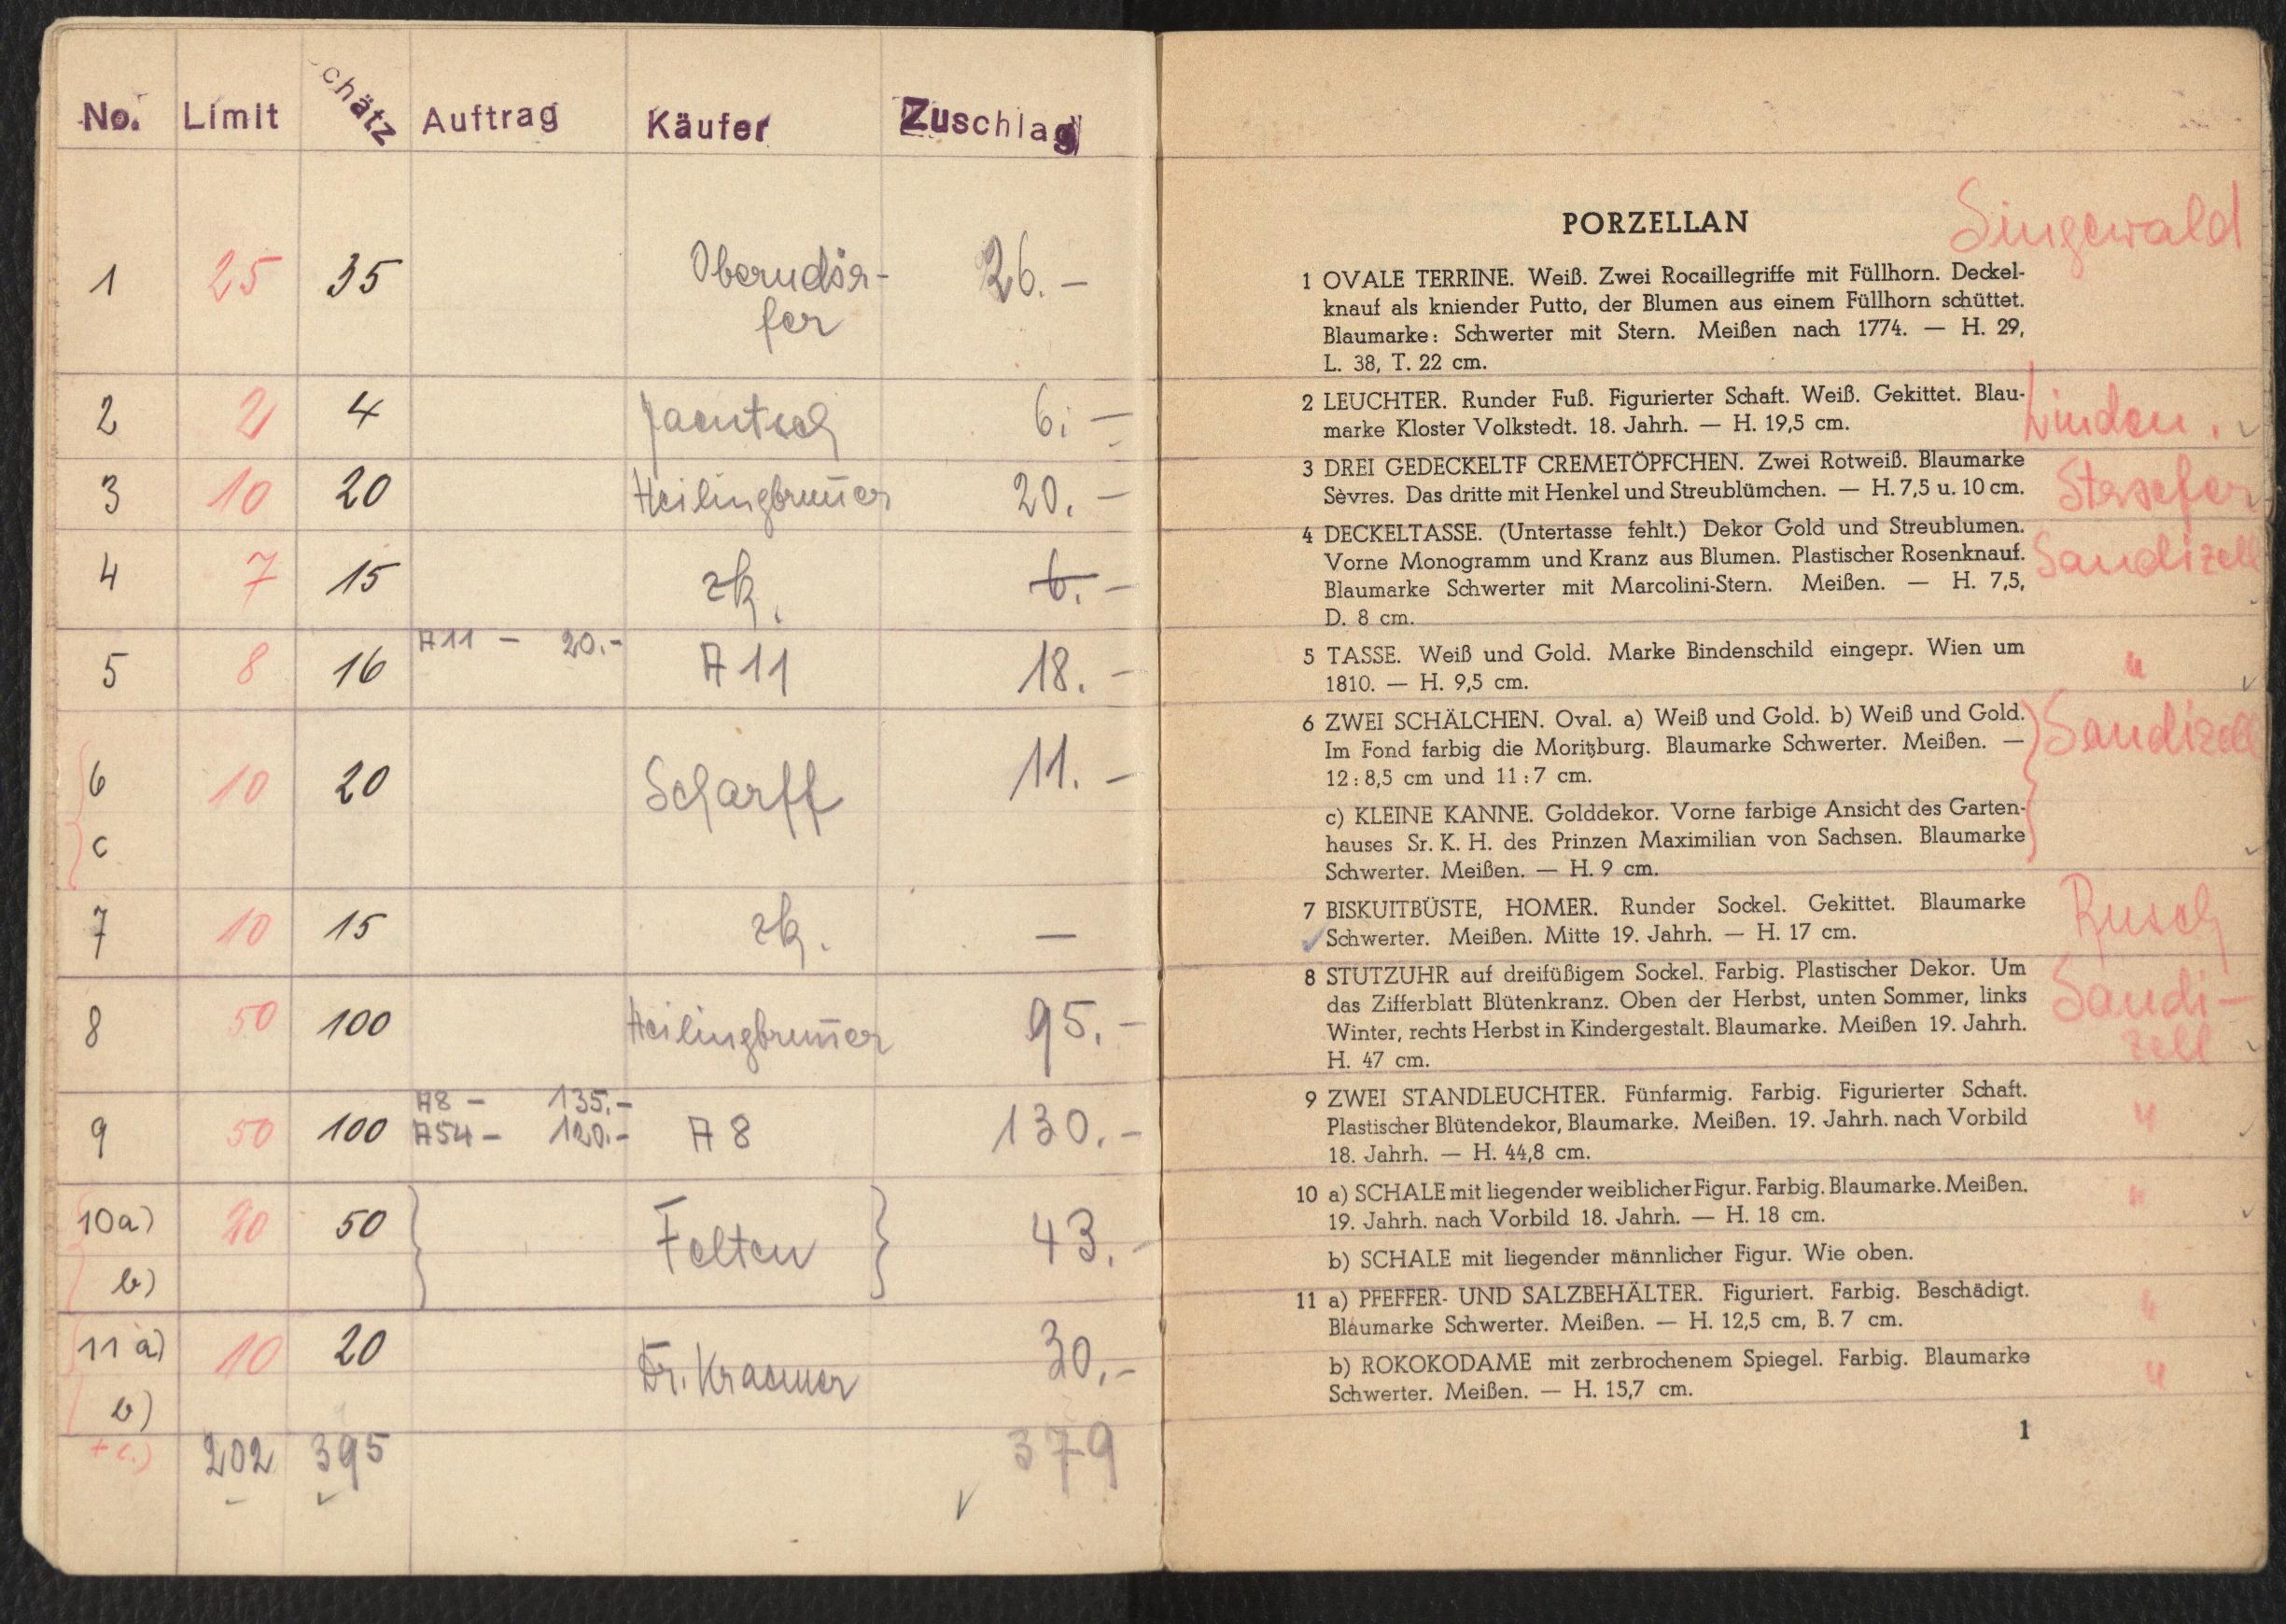 No. Limit Schätz Auftrag Käufer Zuschlag
1 25 35 Oberndör-
fer 26.-
2 2 4 Jaentsch 6.-
3 10 20 Heilingbrunner 20.-
4 7 15 zk. 6.-
5 8 16 A11 - 20.- A11 18.-
6 10 20 Scharff 11.-
c
7 10 15 zk. —
8 50 100 Heilingbrunner 95.-
9 50 100 A8 - 135.- A8 130.-
A54 - 120.-
10a) 20 50 Felten 43.-
b)
11 a) 10 20 Dr. Kraemer 30.-
b)
+ c.) 202 395 379
PORZELLAN
Singewald
1 OVALE TERRINE. Weiß. Zwei Rocaillegriffe mit Füllhorn. Deckel-
knauf als kniender Putto, der Blumen aus einem Füllhorn schüttet.
Blaumarke: Schwerter mit Stern. Meißen nach 1774. — H. 29,
L. 38, T. 22 cm.
2 LEUCHTER. Runder Fuß. Figurierter Schaft. Weiß. Gekittet. Blau-
marke Kloster Volkstedt. 18. Jahrh. — H. 19,5 cm.
Linden.
3 DREI GEDECKELTF CREMETÖPFCHEN. Zwei Rotweiß. Blaumarke
Sèvres. Das dritte mit Henkel und Streublümchen. — H. 7,5 u. 10 cm.
4 DECKELTASSE. (Untertasse fehlt.) Dekor Gold und Streublumen.
Vorne Monogramm und Kranz aus Blumen. Plastischer Rosenknauf.
Sandizell
Blaumarke Schwerter mit Marcolini-Stern. Meißen. — H. 7,5,
D. 8 cm.
5 TASSE. Weiß und Gold. Marke Bindenschild eingepr. Wien um "
1810. — H. 9,5 cm.
6 ZWEI SCHÄLCHEN. Oval. a) Weiß und Gold. b) Weiß und Gold.
Im Fond farbig die Moritzburg. Blaumarke Schwerter. Meißen. —
Sandizell
12 : 8,5 cm und 11 : 7 cm.
c) KLEINE KANNE. Golddekor. Vorne farbige Ansicht des Garten-
hauses Sr. K. H. des Prinzen Maximilian von Sachsen. Blaumarke
Schwerter. Meißen. — H. 9 cm.
7 BISKUITBÜSTE, HOMER. Runder Sockel. Gekittet. Blaumarke
Schwerter. Meißen. Mitte 19. Jahrh. — H. 17 cm.
Rusch
8 STUTZUHR auf dreifüßigem Sockel. Farbig. Plastischer Dekor. Um
das Zifferblatt Blütenkranz. Oben der Herbst, unten Sommer, links
Winter, rechts Herbst in Kindergestalt. Blaumarke. Meißen 19. Jahrh.
H. 47 cm.
Sandi-
zell
9 ZWEI STANDLEUCHTER. Fünfarmig. Farbig. Figurierter Schaft.
Plastischer Blütendekor, Blaumarke. Meißen. 19. Jahrh. nach Vorbild "
18. Jahrh. — H. 44,8 cm.
10 a) SCHALE mit liegender weiblicher Figur. Farbig. Blaumarke. Meißen. "
19. Jahrh. nach Vorbild 18. Jahrh. — H. 18 cm.
b) SCHALE mit liegender männlicher Figur. Wie oben.
11 a) PFEFFER- UND SALZBEHÄLTER. Figuriert. Farbig. Beschädigt. "
Blaumarke Schwerter. Meißen. — H. 12,5 cm, B. 7 cm.
b) ROKOKODAME mit zerbrochenem Spiegel. Farbig. Blaumarke "
Schwerter. Meißen. — H. 15,7 cm.
1